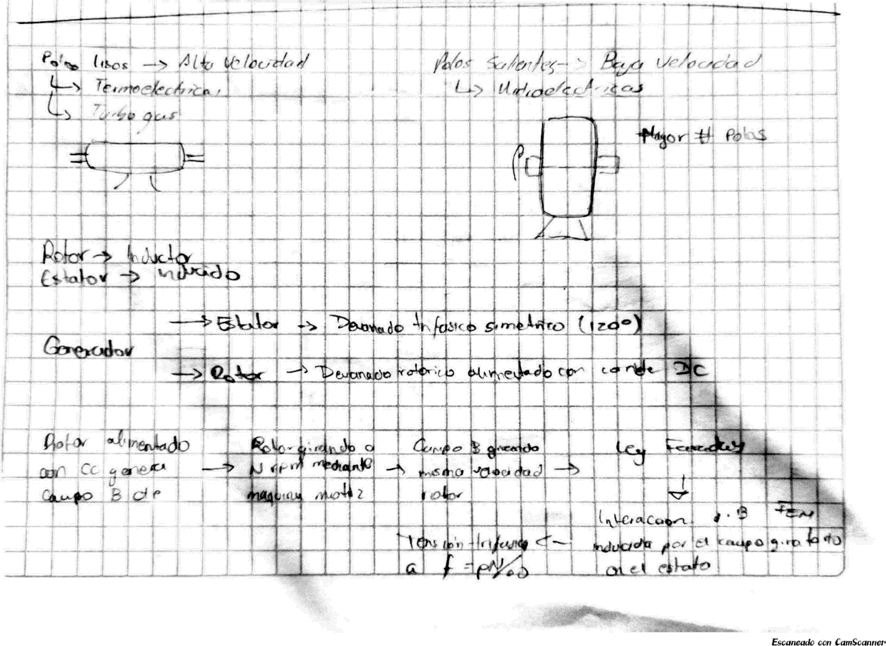 Polos lisos → Alta Velocidad
↳ Termoelectricas
↳ Turbo gas
Polos Salientes → Baja Velocidad
↳ Hidroelectricas
Mayor # Polos
Rotor → Inductor
Estator → inducido
Generador
→ Estator → Devanado trifasico simetrico (120°)
→ Rotor → Devanado rotorico alimentado con corriente DC
Rotor alimentado
con CC genera
Campo B
→ Rotor girando a
N rpm mediante
maquina motriz
→ Campo B girando
misma velocidad
rotor
→ Ley Faraday
↓
Interaccion B FEM
inducida por el campo giratorio
en el estato
← Tension trifasica
a f = pN/60
Escaneado con CamScanner